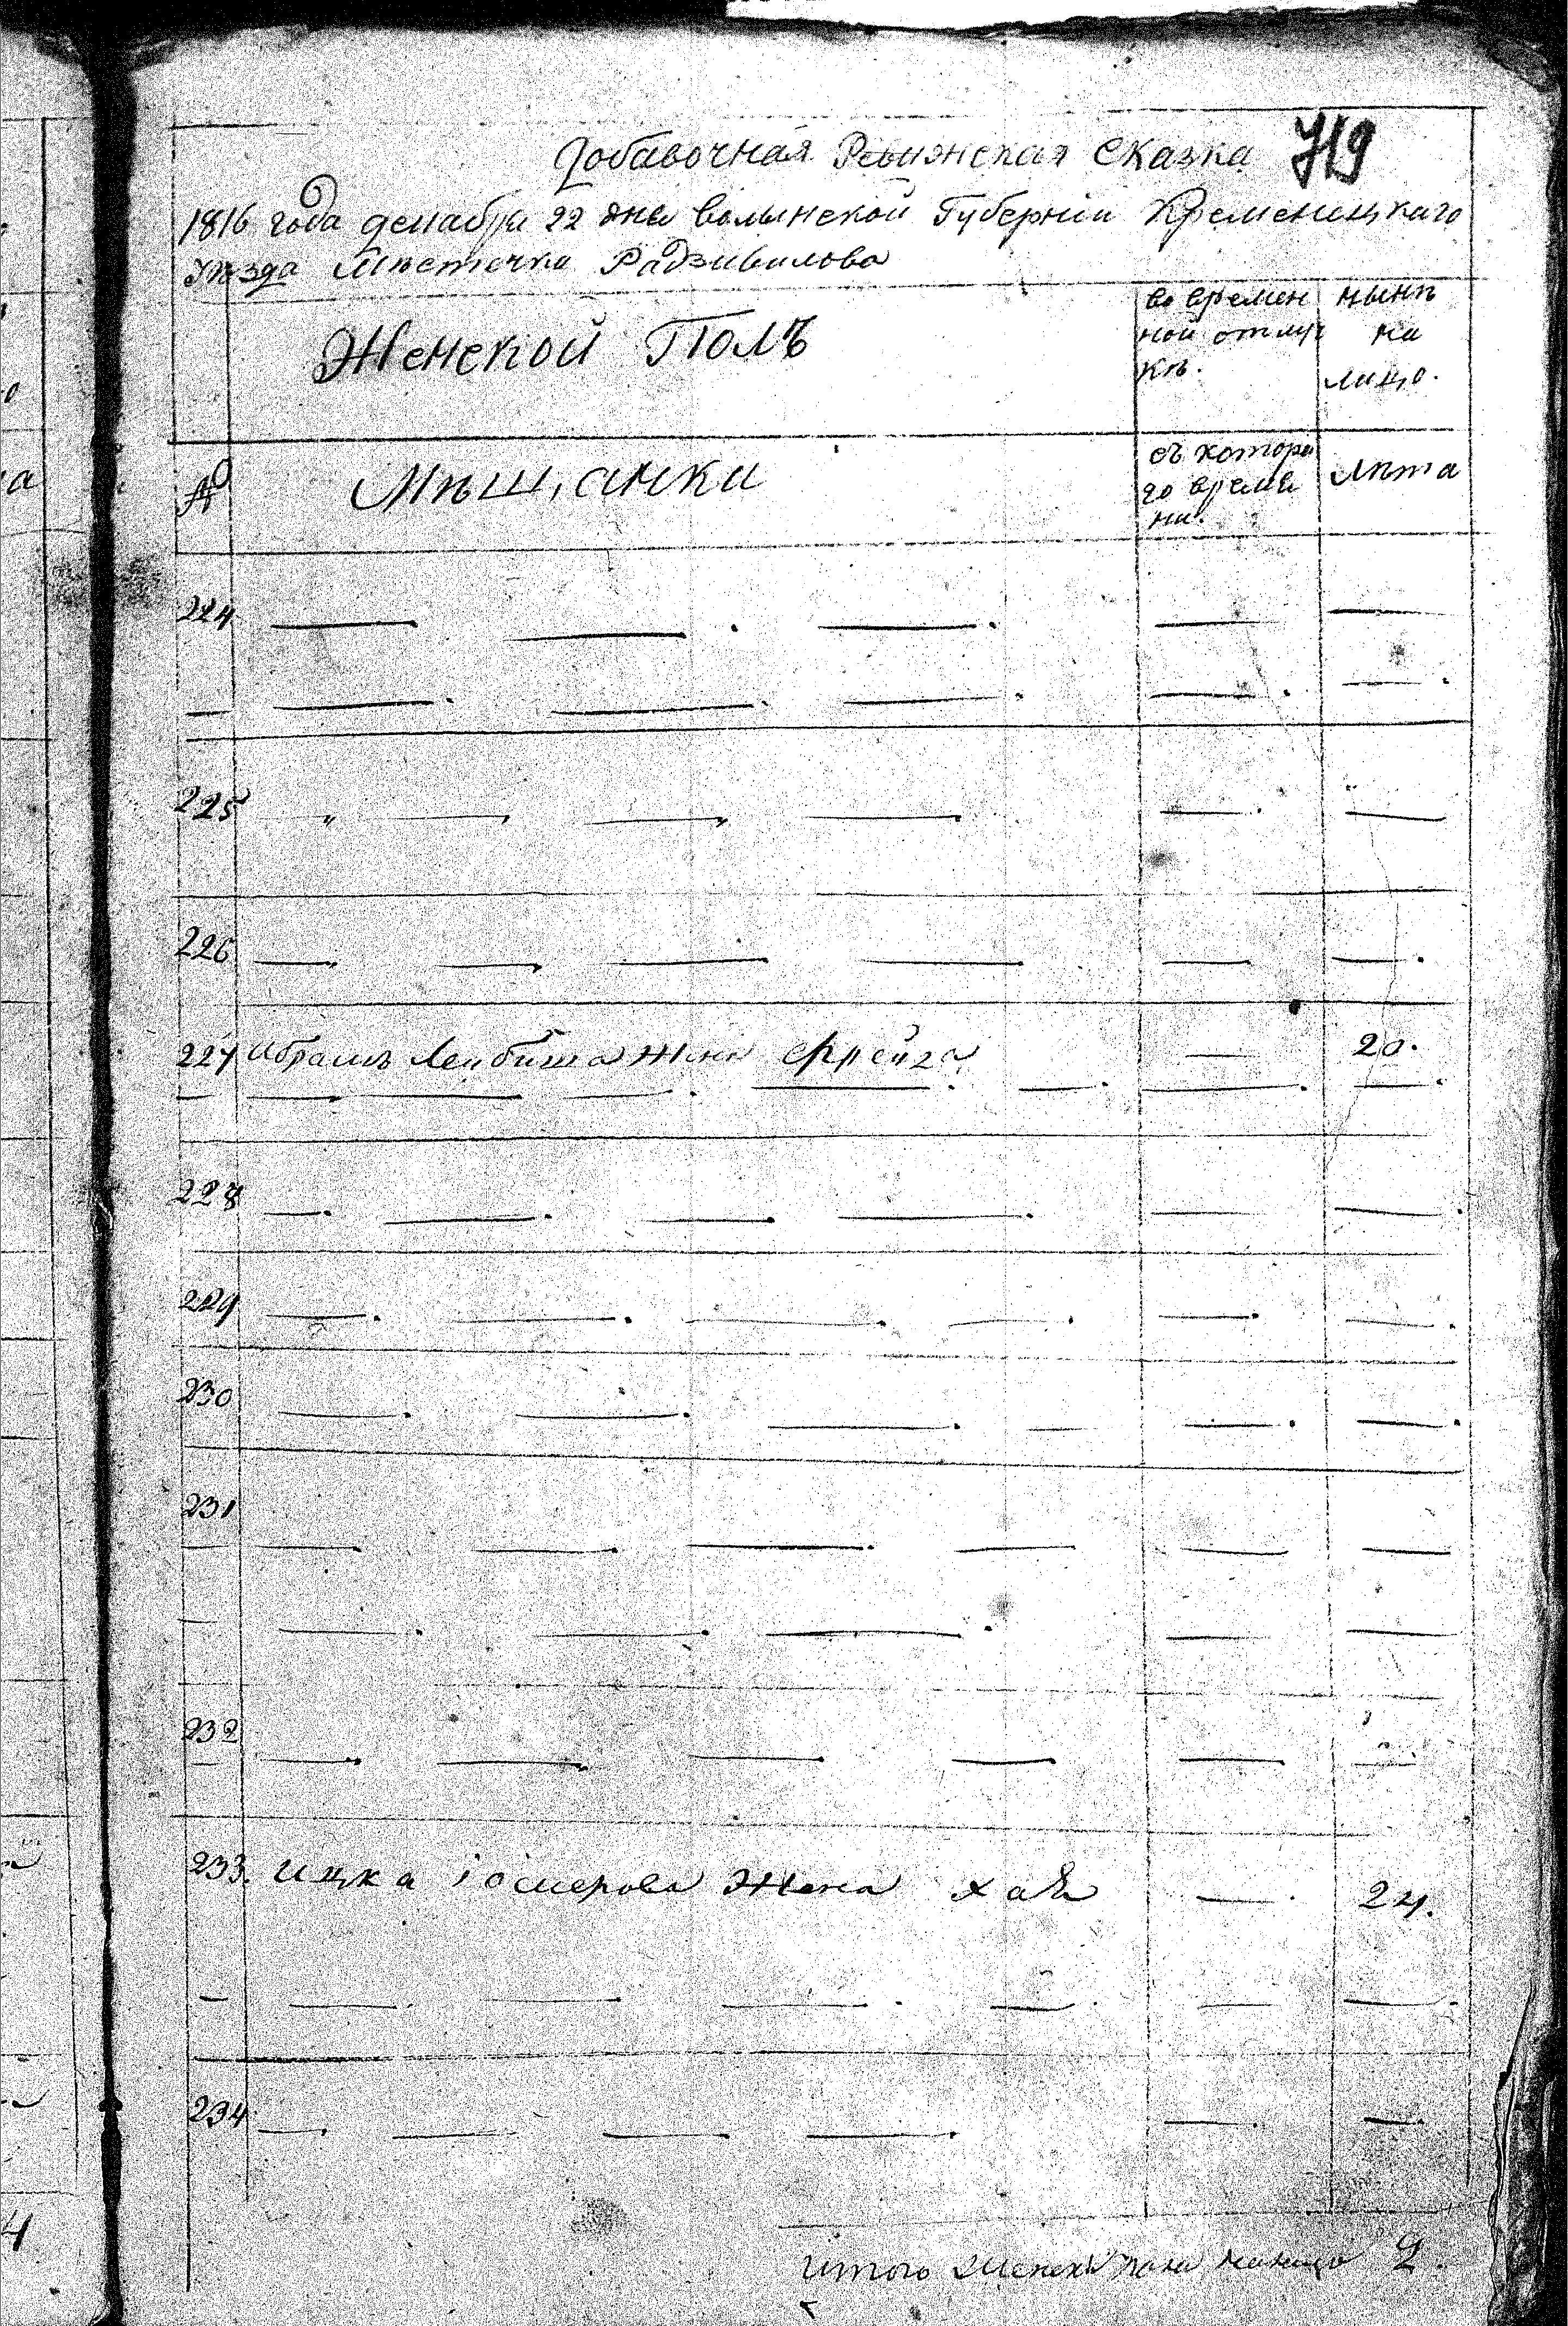 Добавочная Ревижская Сказка 719
1816 года декабря 22 дня Волынской Губерніи Кременецкаго
Уѣзда Мѣстечка Радзивилова
Женской Полъ
во времен
ной отлуч
кѣ.
нынѣ
на
лицо.
№
Мѣщанки
съ котора
го време
ни.
лѣта
224
225
226
227 Абрамъ Лейбиша жена Фрейга 20.
228
229
230
231
232
233. Ицка Іосиерова Жена Хая 24.
234
Итого Женска пола налицо 2.